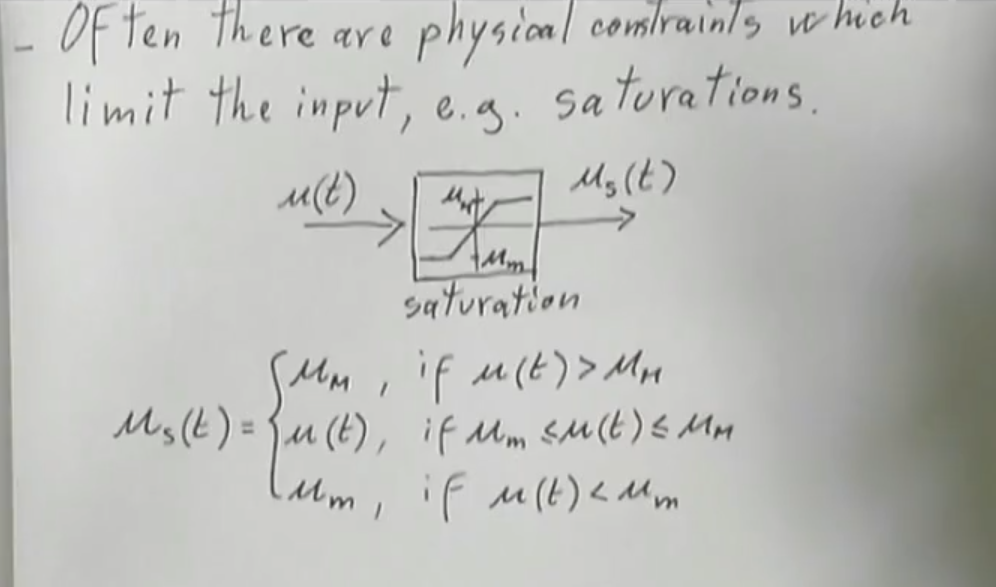 - Often there are physical constraints which
limit the input, e.g. saturations.
u(t) u_M u_m u_s(t)
saturation
u_s(t) = { u_M , if u(t) > u_M
u(t), if u_m ≤ u(t) ≤ u_M
u_m , if u(t) < u_m